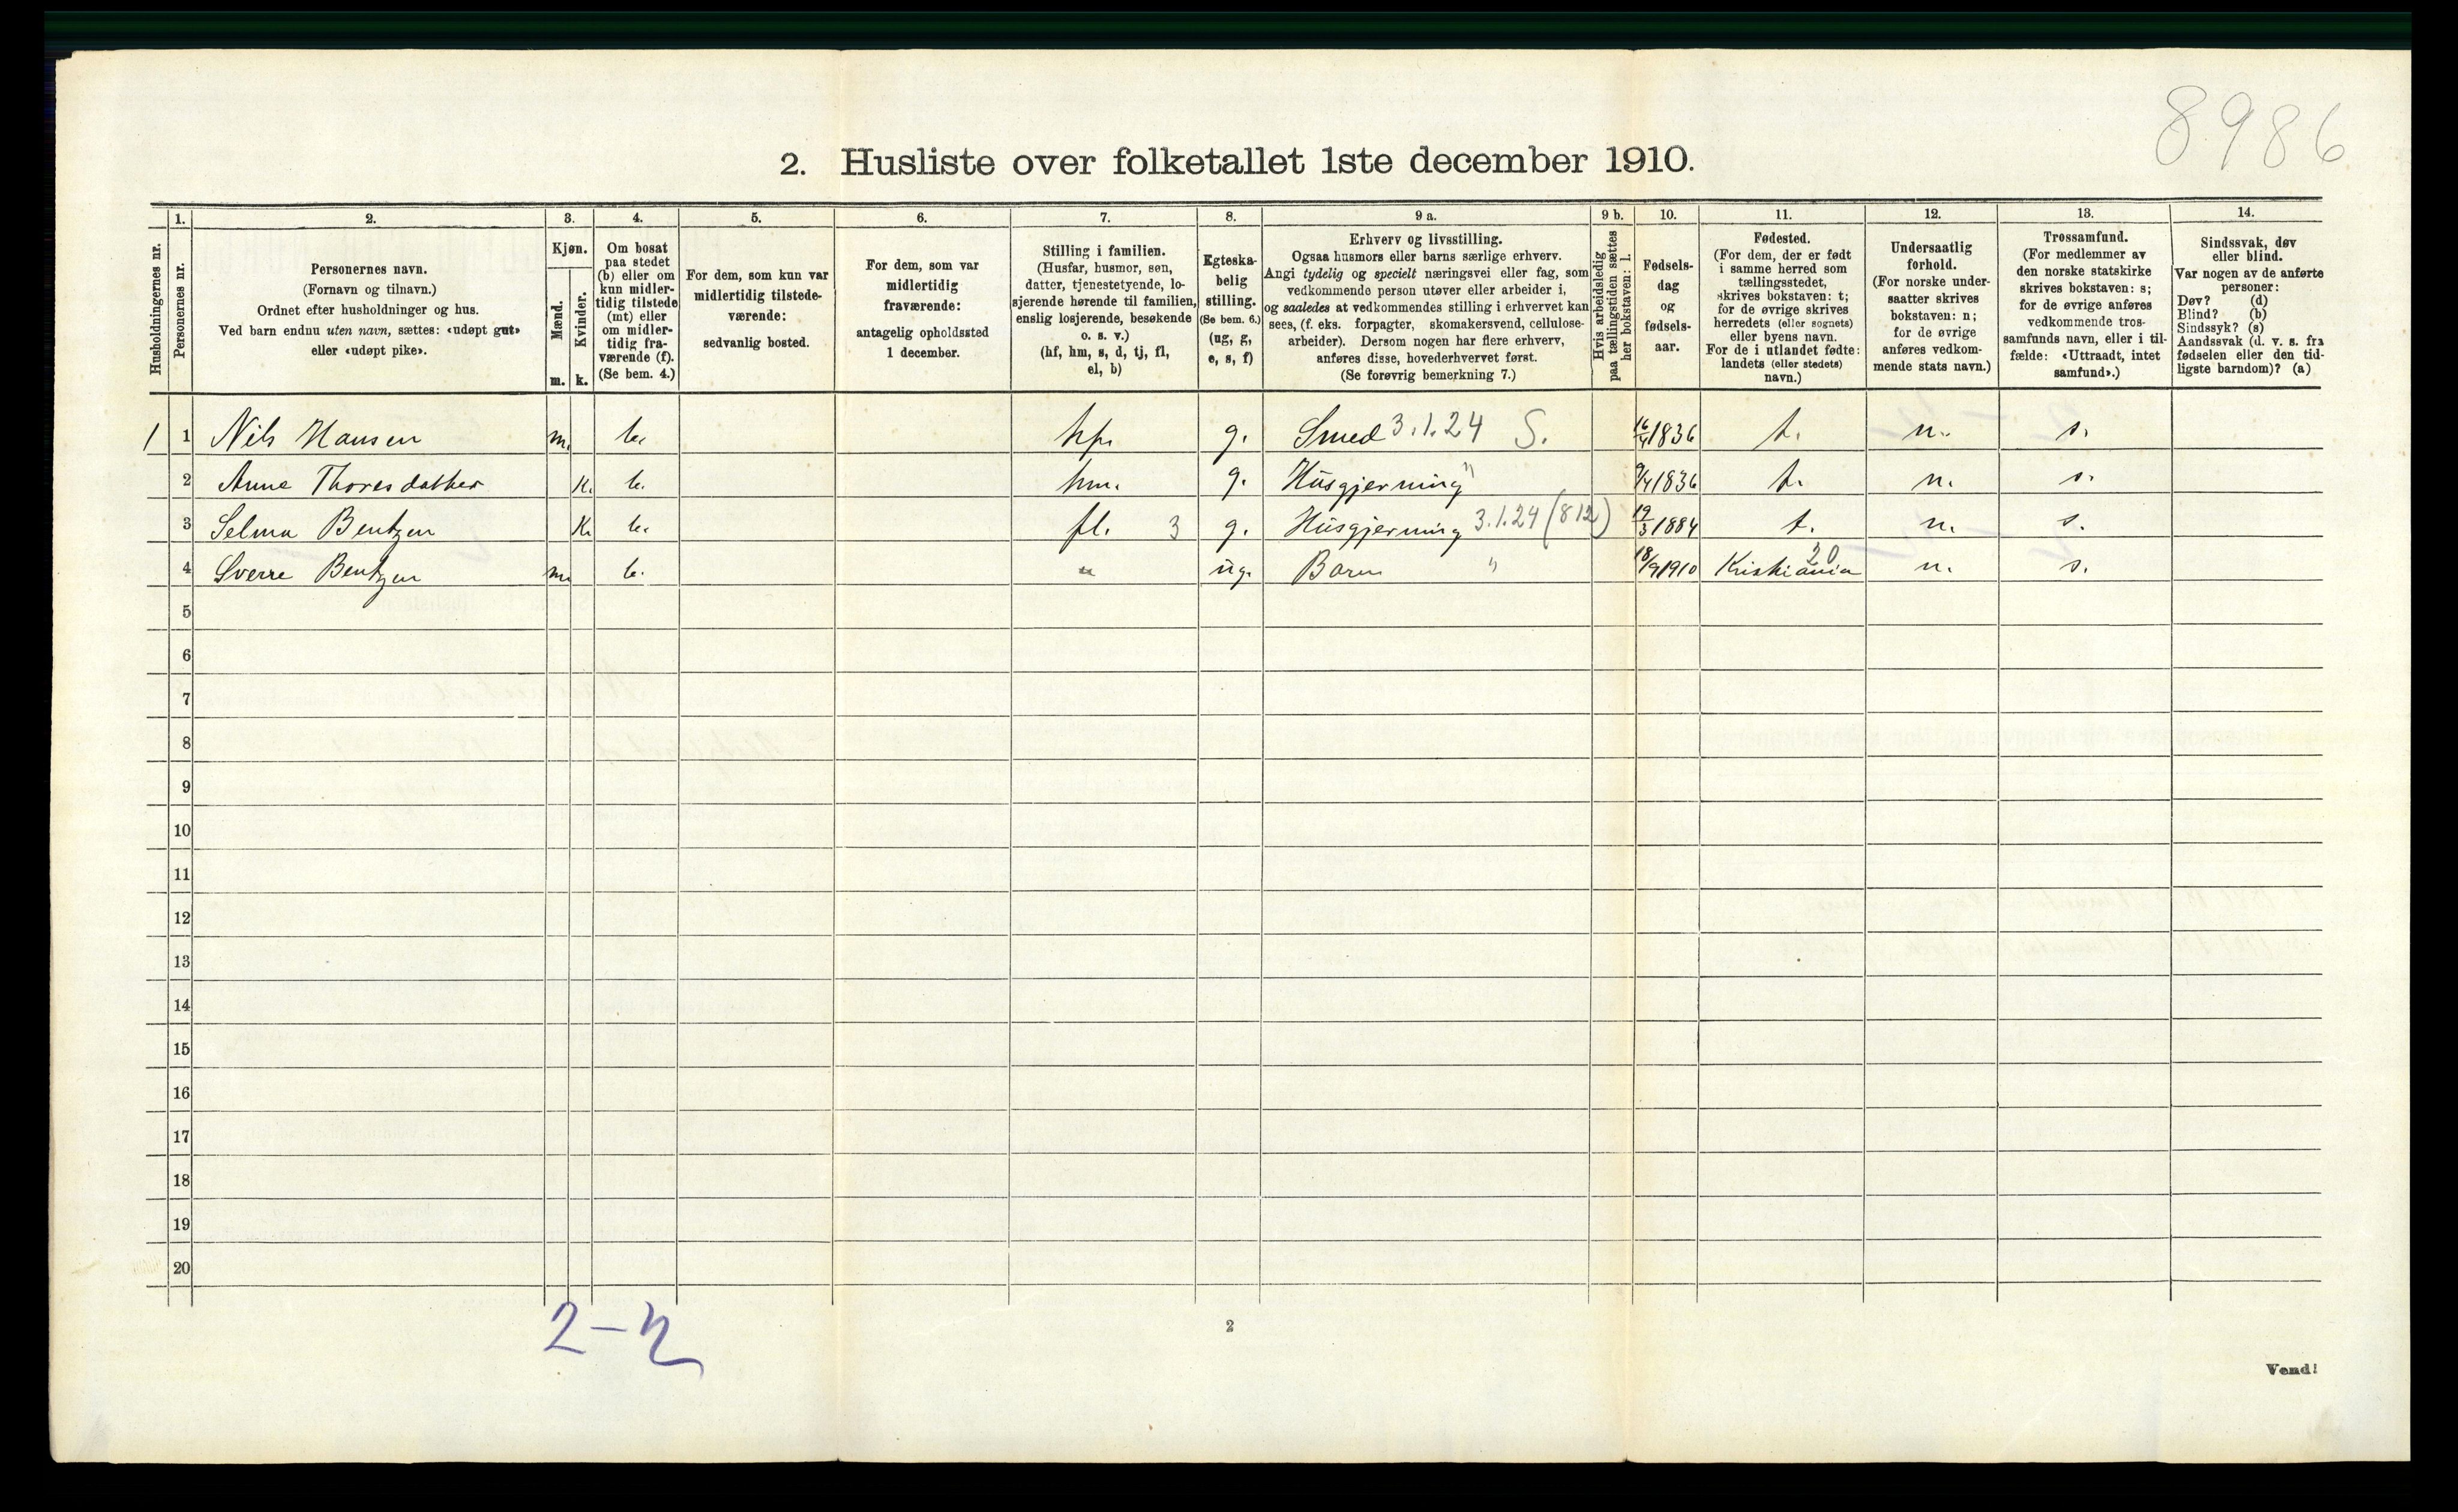 8986
2. Husliste over folketallet 1ste december 1910.
1. 2. 3. 4. 5. 6. 7. 8. 9 a. 9 b. 10. 11. 12. 13. 14.
Husholdningernes nr.
Personernes nr.
Personernes navn.
(Fornavn og tilnavn.)
Ordnet efter husholdninger og hus.
Ved barn endnu uten navn, sættes: «udøpt gut»
eller «udøpt pike».
Kjøn.
Mænd.
Kvinder.
m. k.
Om bosat
paa stedet
(b) eller om
kun midler-
tidig tilstede
(mt) eller
om midler-
tidig fra-
værende (f).
(Se bem. 4.)
For dem, som kun var
midlertidig tilstede-
værende:
sedvanlig bosted.
For dem, som var
midlertidig
fraværende:
antagelig opholdssted
1 december.
Stilling i familien.
(Husfar, husmor, søn,
datter, tjenestetyende, lo-
sjerende hørende til familien,
enslig losjerende, besøkende
o. s. v.)
(hf, hm, s, d, tj, fl,
el, b)
Egteska-
belig
stilling.
(Se bem. 6.)
(ug, g,
e, s, f)
Erhverv og livsstilling.
Ogsaa husmors eller barns særlige erhverv.
Angi tydelig og specielt næringsvei eller fag, som
vedkommende person utøver eller arbeider i,
og saaledes at vedkommendes stilling i erhvervet kan
sees, (f. eks. forpagter, skomakersvend, cellulose-
arbeider). Dersom nogen har flere erhverv,
anføres disse, hovederhvervet først.
(Se forøvrig bemerkning 7.)
Hvis arbeidsledig
paa tællingstiden sættes
her bokstaven: l.
Fødsels-
dag
og
fødsels-
aar.
Fødested.
(For dem, der er født
i samme herred som
tællingsstedet,
skrives bokstaven: t;
for de øvrige skrives
herredets (eller sognets)
eller byens navn.
For de i utlandet fødte:
landets (eller stedets)
navn.)
Undersaatlig
forhold.
(For norske under-
saatter skrives
bokstaven: n;
for de øvrige
anføres vedkom-
mende stats navn.)
Trossamfund.
(For medlemmer av
den norske statskirke
skrives bokstaven: s;
for de øvrige anføres
vedkommende tros-
samfunds navn, eller i til-
fælde: «Uttraadt, intet
samfund».)
Sindssvak, døv
eller blind.
Var nogen av de anførte
personer:
Døv? (d)
Blind? (b)
Sindssyk? (s)
Aandssvak (d. v. s. fra
fødselen eller den tid-
ligste barndom)? (a)
1 1 Nils Hansen m. b. hf. g. Smed 3.1.24 S. 16/4 1836 t. n. s.
2 Anne Thoresdatter k. b. hm. g. Husgjerning " 9/4 1836 t. n. s.
3 Selma Bentzen k. b. fl. 3 g. Husgjerning 3.1.24 (812) 19/3 1884 t. n. s.
4 Sverre Bentzen m. b. " ug. Barn " 18/9 1910 Kristiania 20 n. s.
5
6
7
8
9
10
11
12
13
14
15
16
17
18
19
20
2-2
2
Vend!